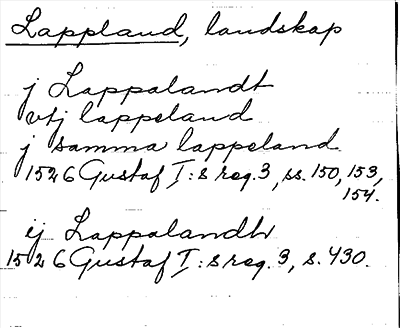 Lappland, landskap
j Lappalandt
vtj lappeland
j samma lappeland
1526 Gustaf I:s reg. 3, ss. 150, 153,
154.
ij Lappalandh
1526 Gustaf I:s reg. 3, s. 430.